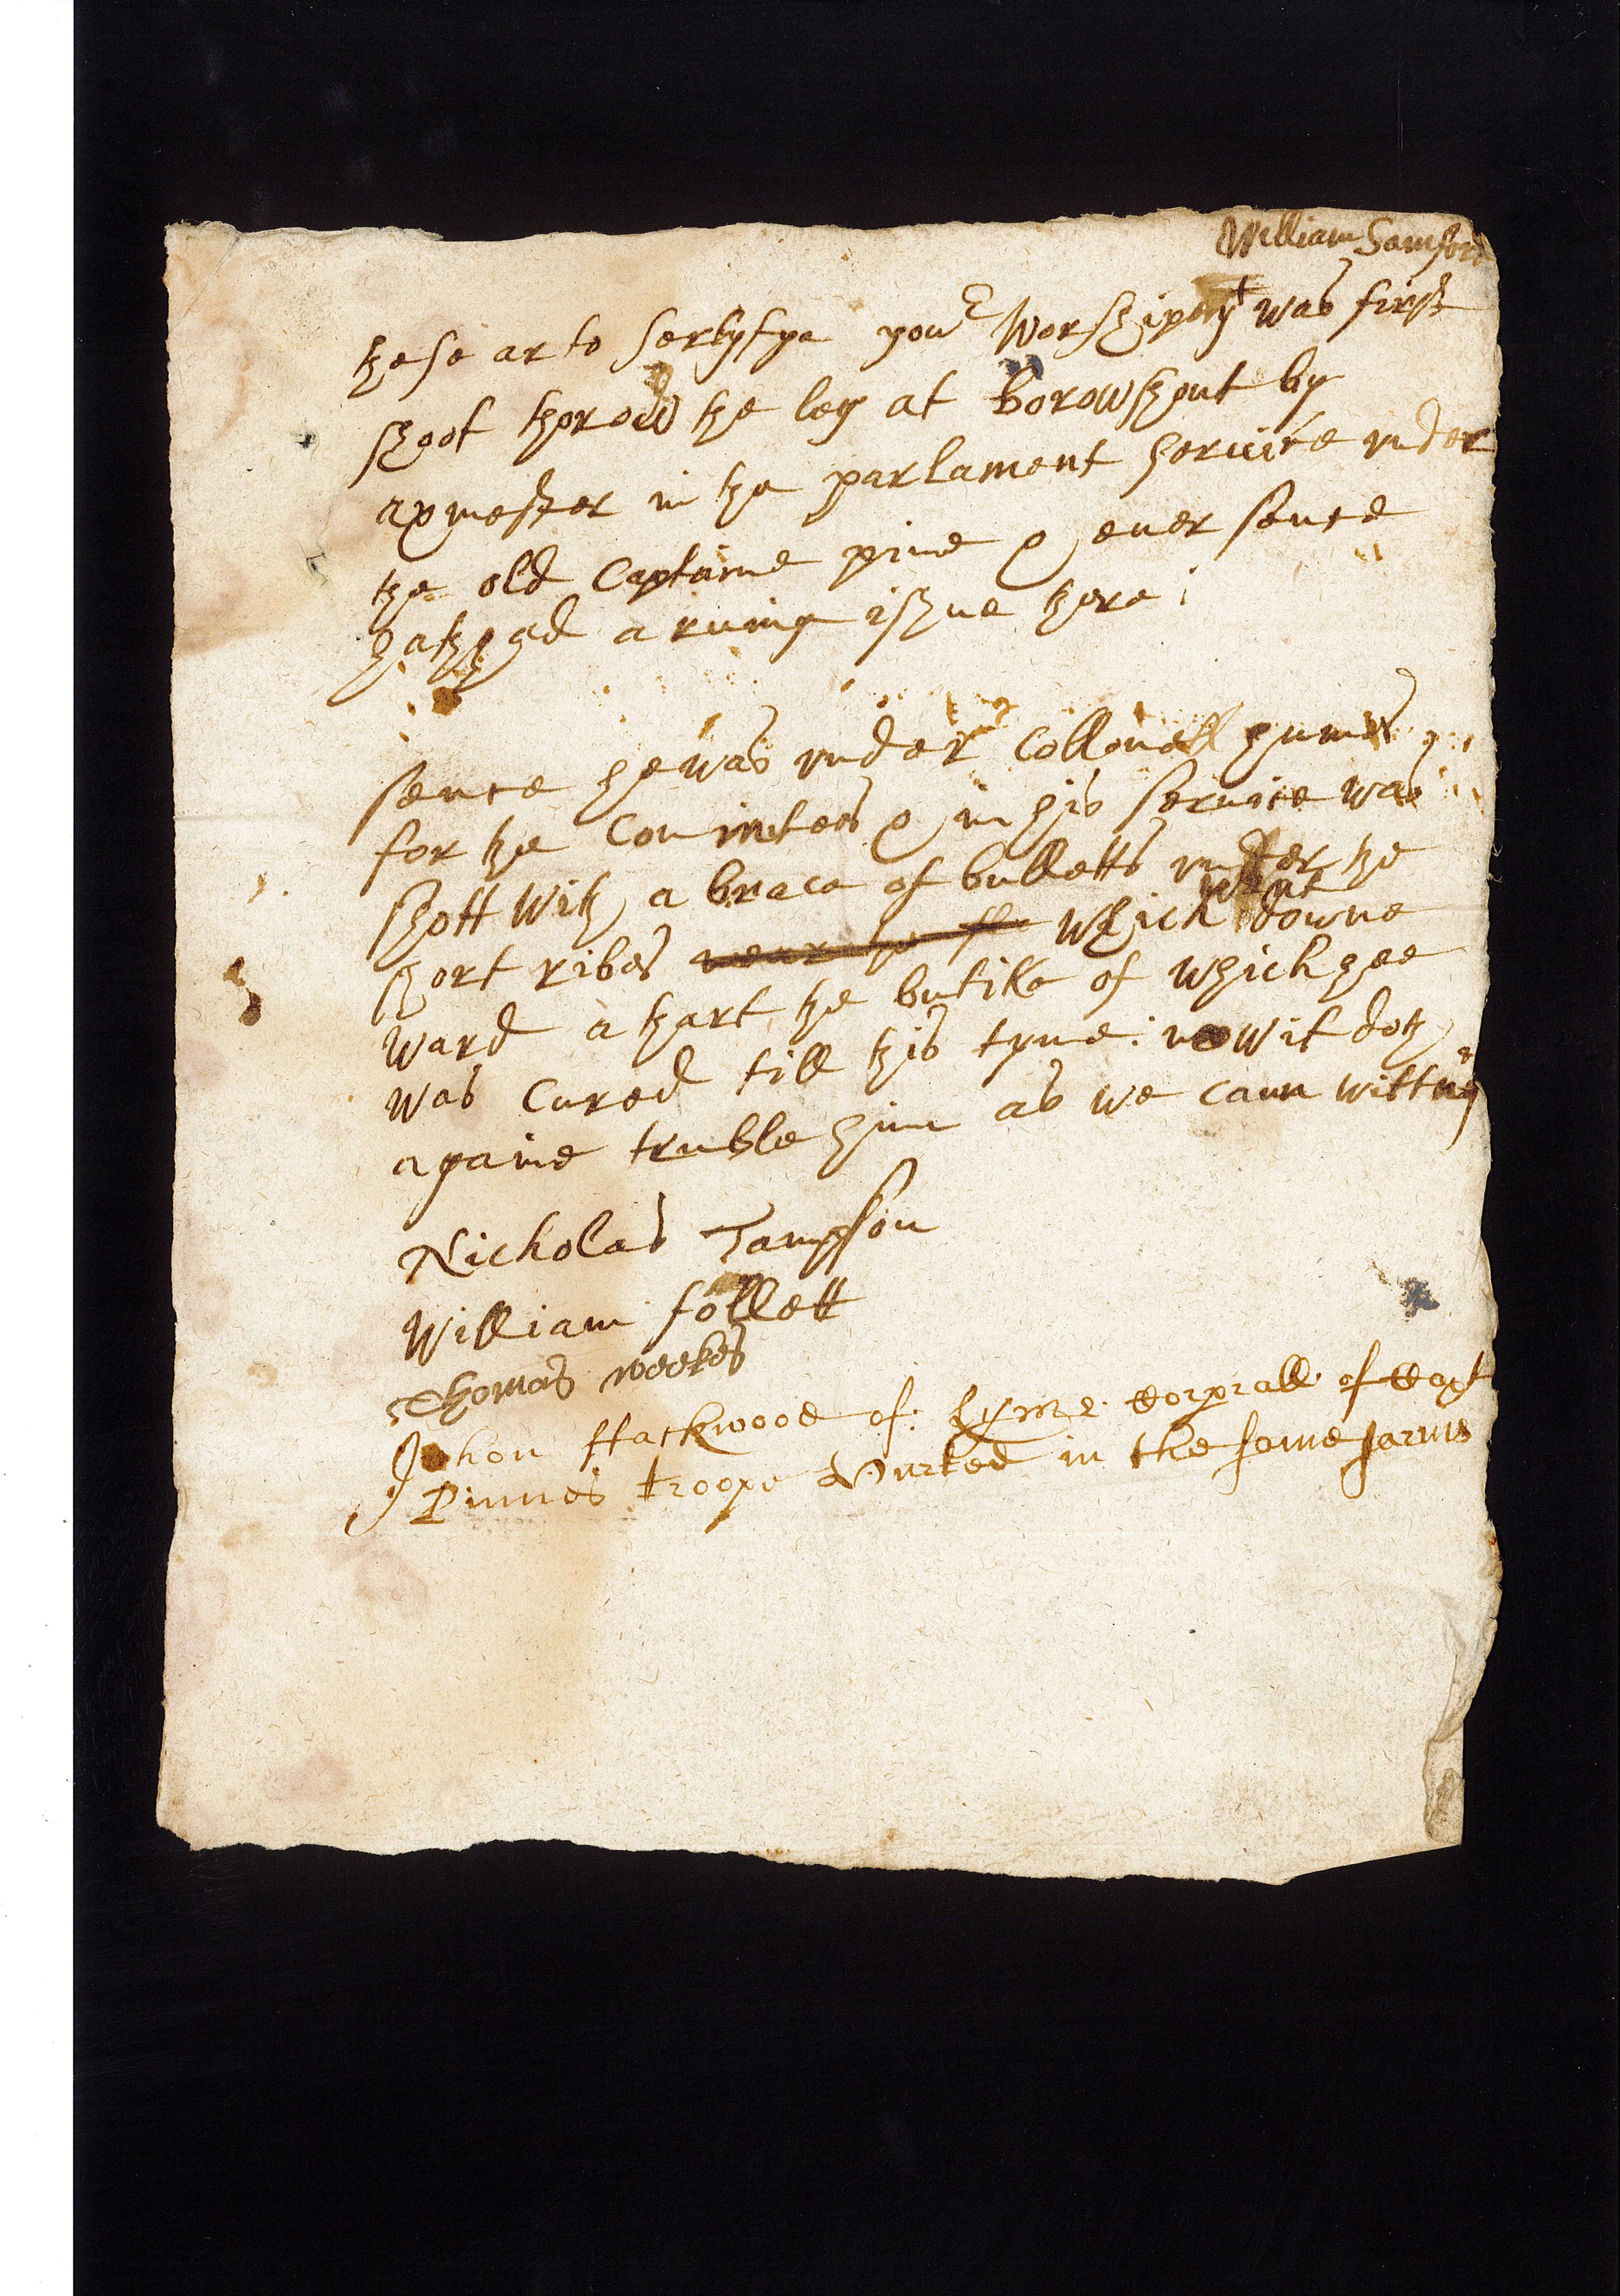 William Samford
these ar to sertyfye your Worshipes yt was first
shoot thorow the leg at borowshout by
axmester in the parlament seruice vnder
the old Captaine pine & euer sence
hath had a runig ishue there ;
sence he was vnder Collonell
for the Comintees & in his seruice was
shott with a brace of bulletts vnder the
short ribes which went downe
ward athart the butike of which hee
was Cured till this tyme : now it doth
againe truble him as we cann wittnes
Nicholas Sampson
William follett
Thomas weekes
Jhon Hackwood of Lyme Corprall of Capt
Pinnes troope in the same